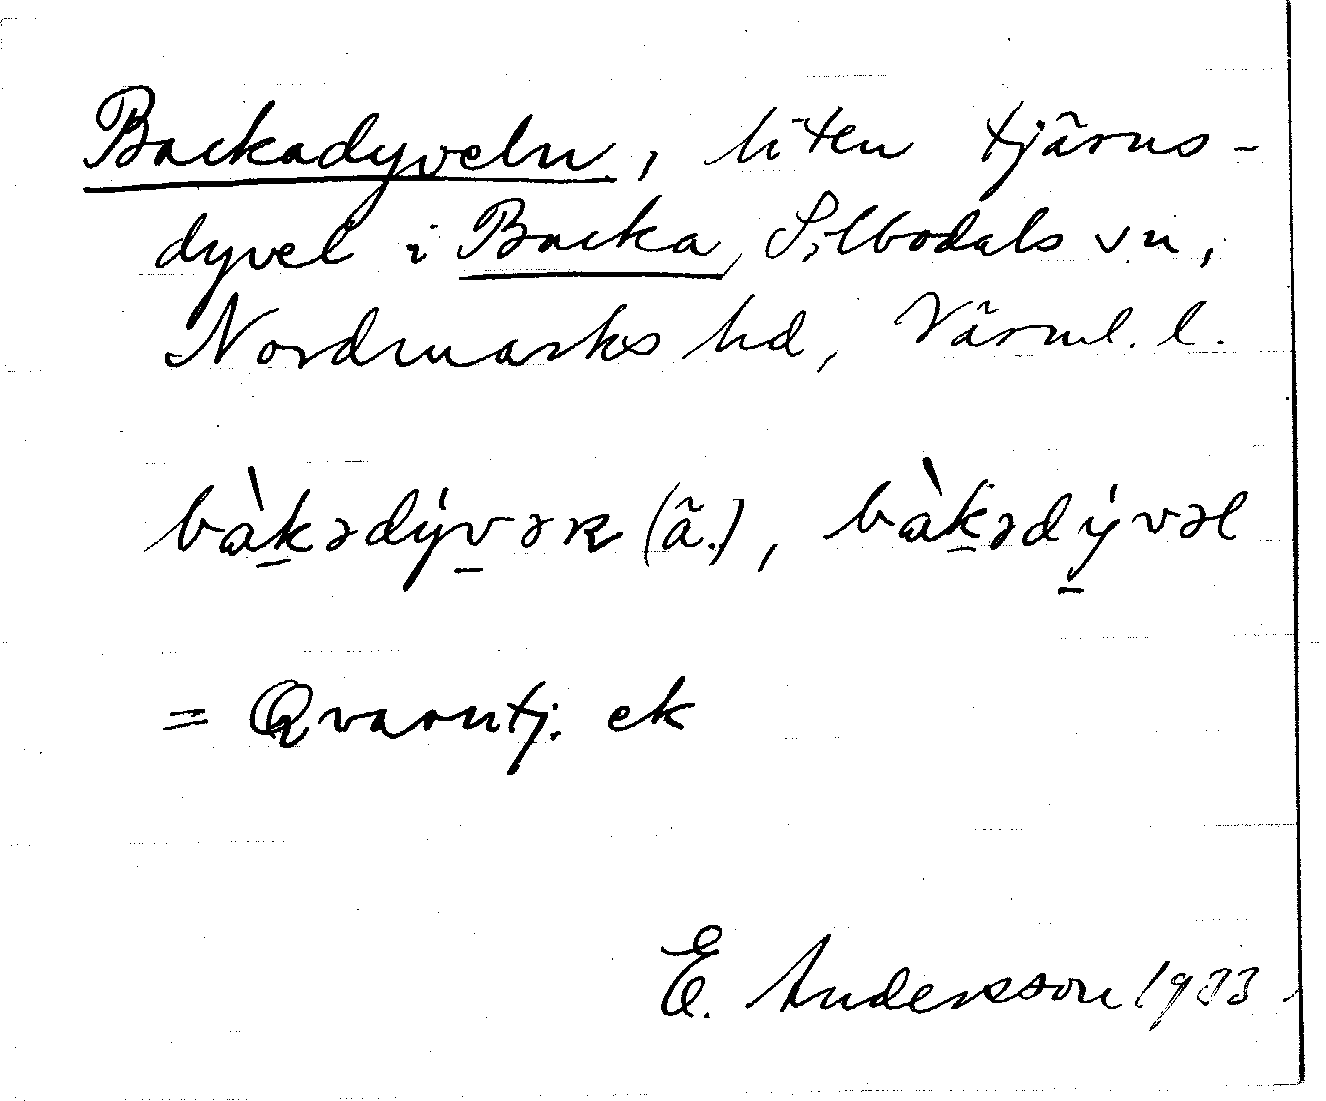 Backadyveln, liten tjärns-
dyvel i Backa, Silbodals sn,
Nordmarks hd, Värml. l.
bàk̠ədýv̠əɴ (ä.), bàk̠ədý̠vəl
= Qvarntj. ek
E. Andersson 1933